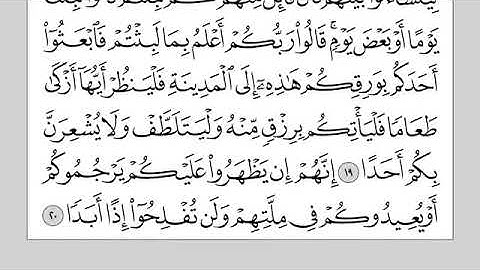 يَوْمًا أَوْ بَعْضَ يَوْمٍ ۚ قَالُوا۟ رَبُّكُمْ أَعْلَمُ بِمَا لَبِثْتُمْ فَٱبْعَثُوٓا۟
أَحَدَكُم بِوَرِقِكُمْ هَـٰذِهِۦٓ إِلَى ٱلْمَدِينَةِ فَلْيَنظُرْ أَيُّهَآ أَزْكَىٰ
طَعَامًا فَلْيَأْتِكُم بِرِزْقٍ مِّنْهُ وَلْيَتَلَطَّفْ وَلَا يُشْعِرَنَّ
بِكُمْ أَحَدًا ١٩ إِنَّهُمْ إِن يَظْهَرُوا۟ عَلَيْكُمْ يَرْجُمُوكُمْ
أَوْ يُعِيدُوكُمْ فِى مِلَّتِهِمْ وَلَن تُفْلِحُوٓا۟ إِذًا أَبَدًا ٢٠